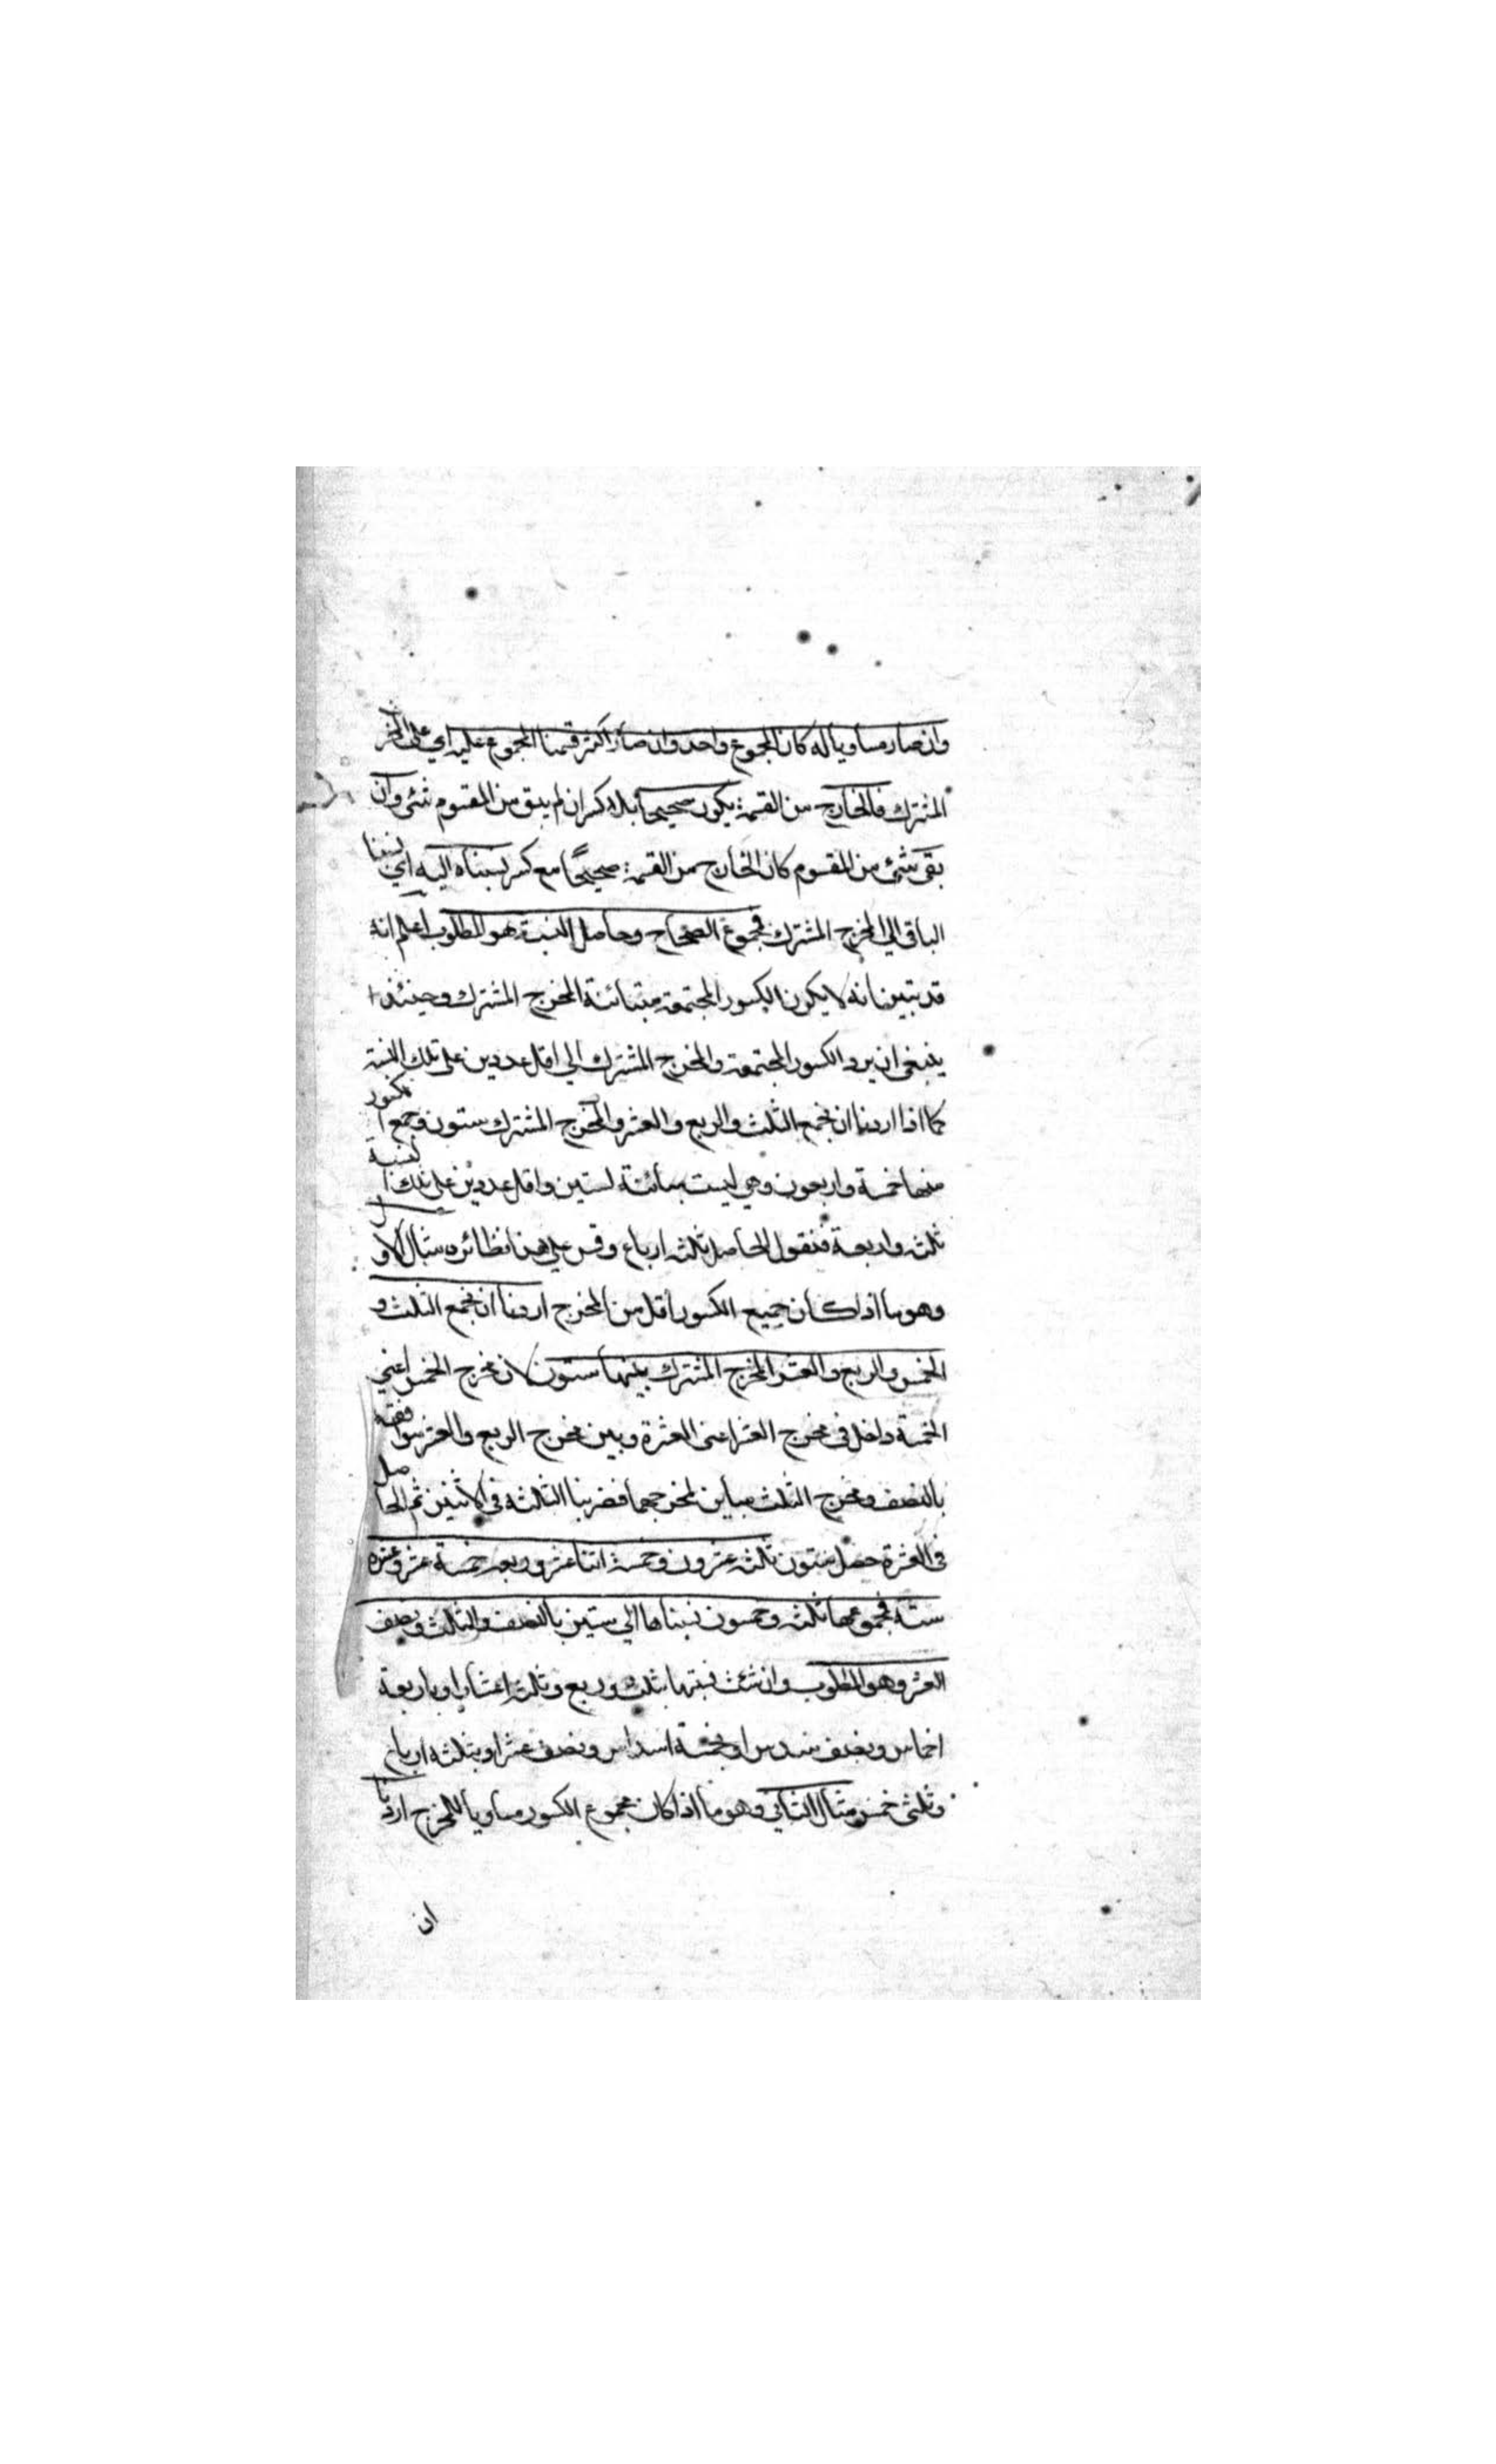 وان صار مساويا له كان المجموع واحد وان صار اكثر قسمنا المجموع عليه اي على المخرج
المشترك فالخارج من القسمة يكون صحيحا بلا كسر ان لم يبق من المقسوم شئ وان
بقى شئ من المقسوم كان الخارج من القسمة صحيحًا مع كسر نسبناه اليه اي نسبنا
الباقى الى المخرج المشترك فمجموع الصحاح وحاصل النسبة هو المطلوب اعلم انه
قد يتبين انه لا يكون الكسور المجتمعة مبتائنة المخرج المشترك وحينئذ
ينبغى ان يرد الكسور المجتمعة والمخرج المشترك الى اقل عددين على تلك النسبة
كما اذا اردنا ان نجمع الثلث والربع والعشر والمخرج المشترك ستون وجمع الكسور
منها خمسة واربعون وهي ليست مبائنة لستين واقل عددين على تلك النسبة
ثلثه واربعة فنقول الحاصل ثلثه ارباع وقس على هذا نظائره مثال الاول
وهو ما اذا كان جميع الكسور اقل من المخرج اردنا ان نجمع الثلث و
الخمس والربع والعشر المخرج المشترك بينها ستون لان مخرج الخمس اعني
الخمسة داخل فى مخرج العشر اعنى العشرة وبين مخرج الربع والعشر موافقه
بالنصف ومخرج الثلث مباين لمخرجيهما فضربنا الثلثه فى الاثنين ثم الحاصل
فى العشرة حصل ستون ثلثه عشرون وخمسه اثنا عشر وربعه خمسة عشر وعشره
سته فمجموعها ثلثه وخمسون نسبناها الى ستين بالنصف والثلث ونصف
العشر وهو المطلوب وان شئت نسبتها بثلث وربع وثلثه اعشار او باربعة
اخماس ونصف سدس او بخمسة اسداس ونصف عشر او بثلثه ارباع
وثلثى خمس مثال الثاني وهو ما اذا كان مجموع الكسور مساويا للمخرج اردنا
ان